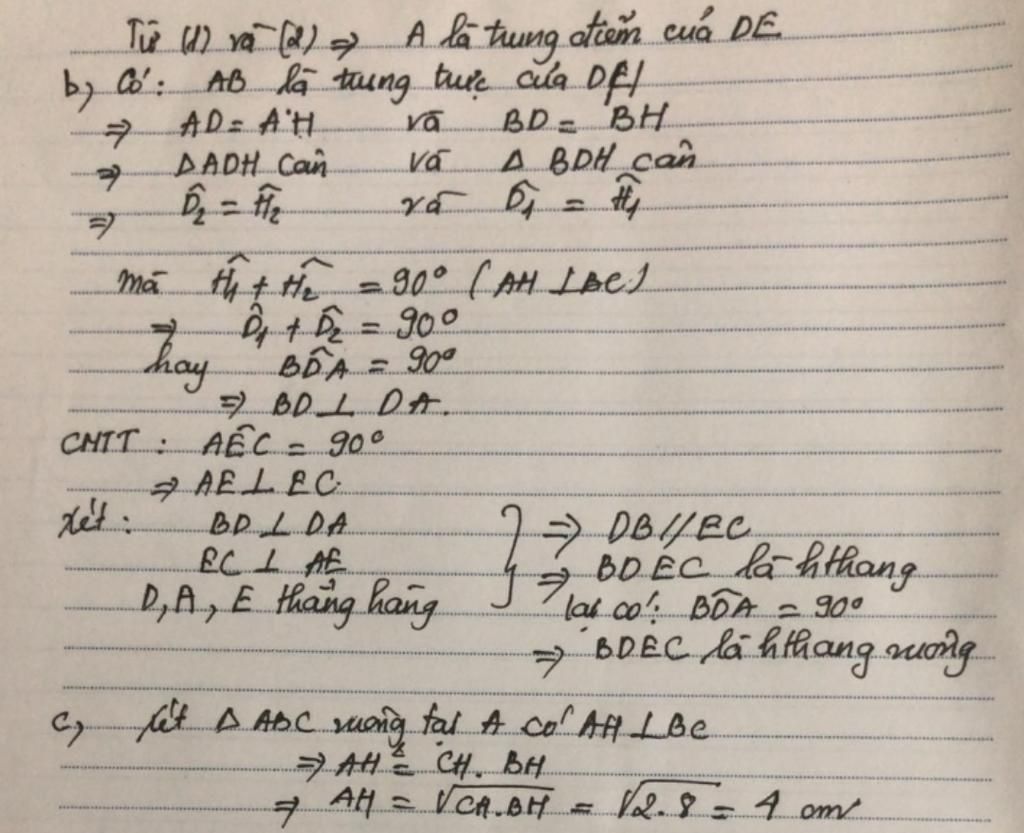 Từ (1) và (2) => A là trung điểm của DE
b, Có: AB là trung trực của DH
=> AD = AH và BD = BH
=> ΔADH cân và Δ BDH cân
=> D̂₂ = Ĥ₂ và D̂₁ = Ĥ₁
mà Ĥ₁ + Ĥ₂ = 90° (AH ⊥ BC)
=> D̂₁ + D̂₂ = 90°
hay BD̂A = 90°
=> BD ⊥ DA.
CMTT : AÊC = 90°
=> AE ⊥ EC.
Xét: BD ⊥ DA
EC ⊥ AE
D, A, E thẳng hàng
} => DB // EC
=> BDEC là hthang
lại có: BD̂A = 90°
=> BDEC là hthang vuông
c, Xét Δ ABC vuông tại A có AH ⊥ BC
=> AH² = CH. BH
=> AH = √CH.BH = √2.8 = 4 cm